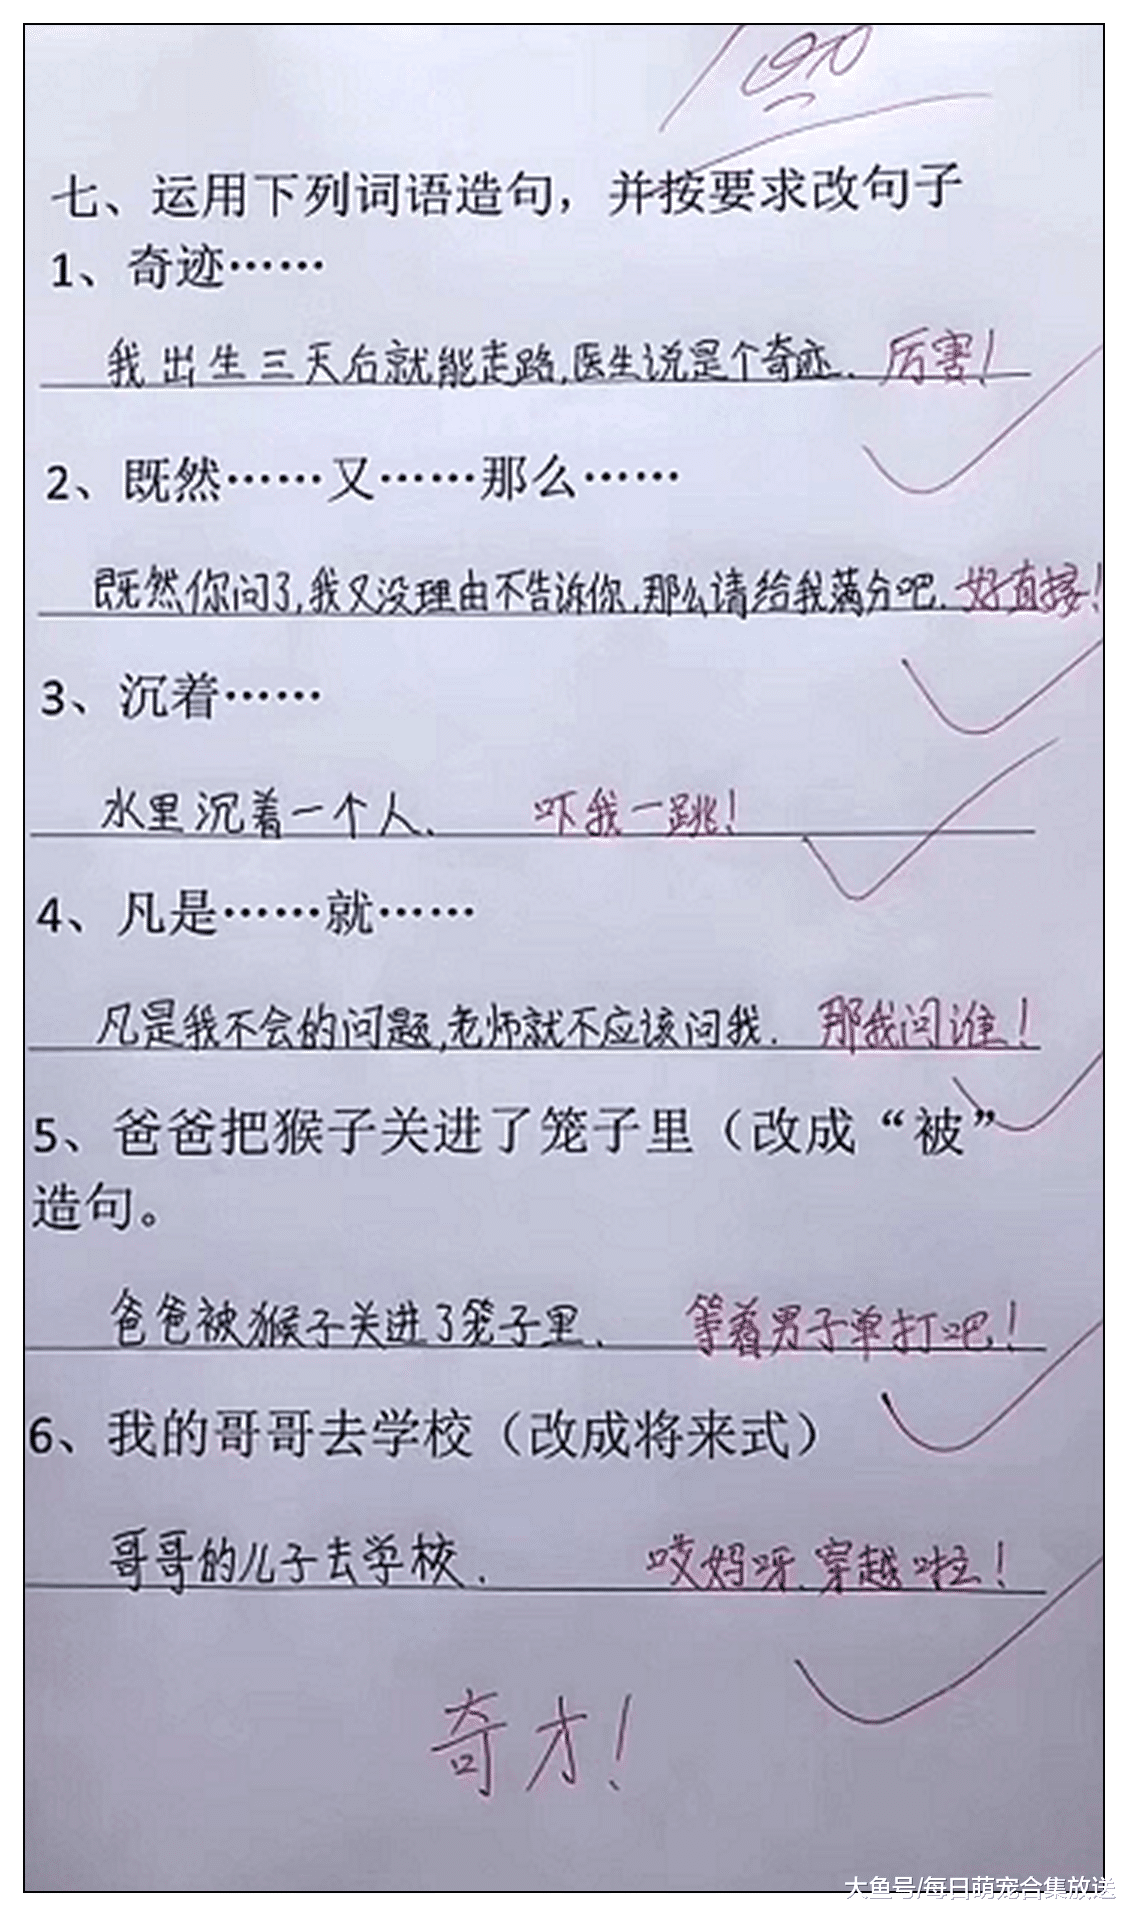 100
七、运用下列词语造句，并按要求改句子
1、奇迹……
我出生三天后就能走路,医生说是个奇迹. 厉害!
2、既然……又……那么……
既然你问了,我又没理由不告诉你,那么请给我满分吧. 好直接!
3、沉着……
水里沉着一个人. 吓我一跳!
4、凡是……就……
凡是我不会的问题,老师就不应该问我. 那我问谁!
5、爸爸把猴子关进了笼子里（改成“被”
造句。
爸爸被猴子关进了笼子里. 等着男子单打吧!
6、我的哥哥去学校（改成将来式）
哥哥的儿子去学校. 哎妈呀.穿越啦!
奇才!
大鱼号/每日萌宠合集放送